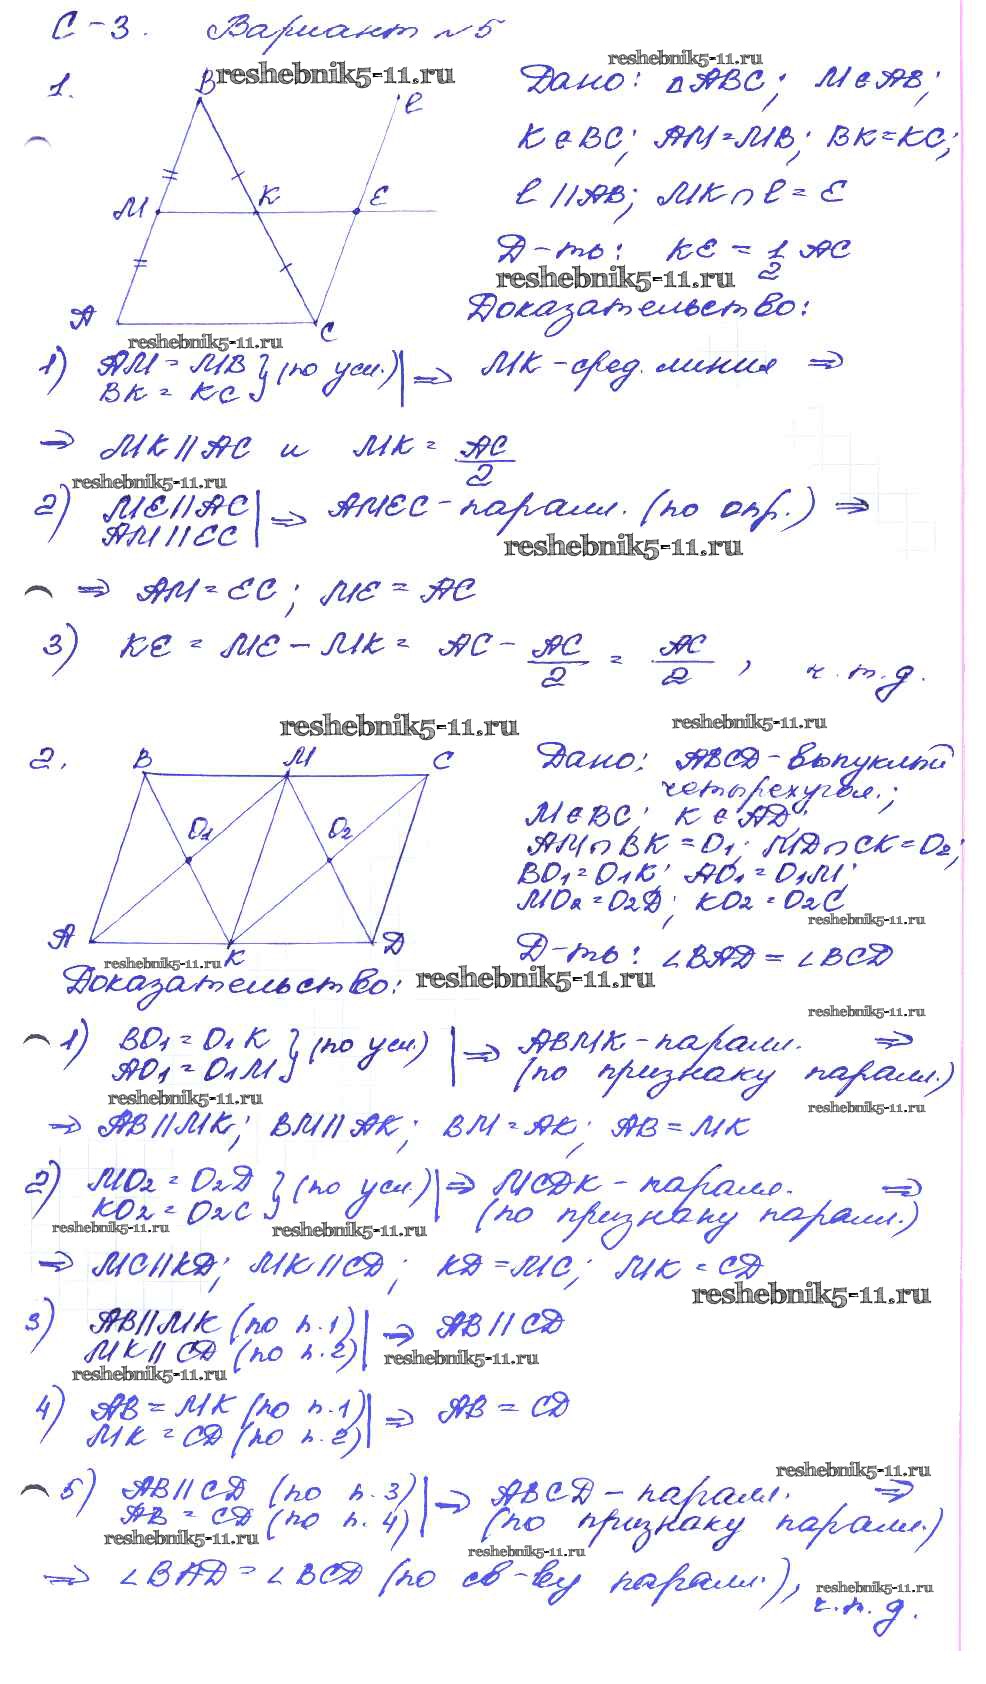 С-3. Вариант №5
reshebnik5-11.ru
reshebnik5-11.ru
1.
B
l
M
K
E
A
C
Дано: △ABC; M∈AB;
K∈BC; AM=MB; BK=KC;
l∥AB; MK∩l=E
Д-ть: KE = 1/2 AC
reshebnik5-11.ru
Доказательство:
reshebnik5-11.ru
1) AM = MB
BK = KC } (по усл.) | ⇒ MK - сред. линия ⇒
⇒ MK∥AC и MK = AC/2
reshebnik5-11.ru
2) ME∥AC
AM∥EC | ⇒ AMEC - паралл. (по опр.) ⇒
reshebnik5-11.ru
⇒ AM = EC; ME = AC
3) KE = ME - MK = AC - AC/2 = AC/2, ч.т.д.
reshebnik5-11.ru
reshebnik5-11.ru
2.
B M C
O1 O2
A K Д
Дано: ABCД - выпуклый
четырехугол.;
M∈BC; K∈AД;
AM∩BK=O1; MД∩CK=O2;
BO1=O1K; AO1=O1M;
MO2=O2Д; KO2=O2C
reshebnik5-11.ru
Д-ть: ∠BAД = ∠BCД
reshebnik5-11.ru
Доказательство:
reshebnik5-11.ru
reshebnik5-11.ru
1) BO1 = O1K
AO1 = O1M } (по усл) | ⇒ ABMK - паралл. ⇒
(по признаку паралл.)
reshebnik5-11.ru
reshebnik5-11.ru
⇒ AB∥MK; BM∥AK; BM = AK; AB = MK
2) MO2 = O2Д
KO2 = O2C } (по усл.) | ⇒ MCДK - паралл. ⇒
(по признаку паралл.)
reshebnik5-11.ru
reshebnik5-11.ru
⇒ MC∥KД; MK∥CД; KД = MC; MK = CД
reshebnik5-11.ru
3) AB∥MK (по п.1)
MK∥CД (по п.2) | ⇒ AB∥CД
reshebnik5-11.ru
reshebnik5-11.ru
4) AB = MK (по п.1)
MK = CД (по п.2) | ⇒ AB = CД
reshebnik5-11.ru
5) AB∥CД (по п.3)
AB = CД (по п.4) | ⇒ ABCД - паралл. ⇒
(по признаку паралл.)
reshebnik5-11.ru
reshebnik5-11.ru
⇒ ∠BAД = ∠BCД (по св-ву паралл.),
reshebnik5-11.ru
ч.т.д.